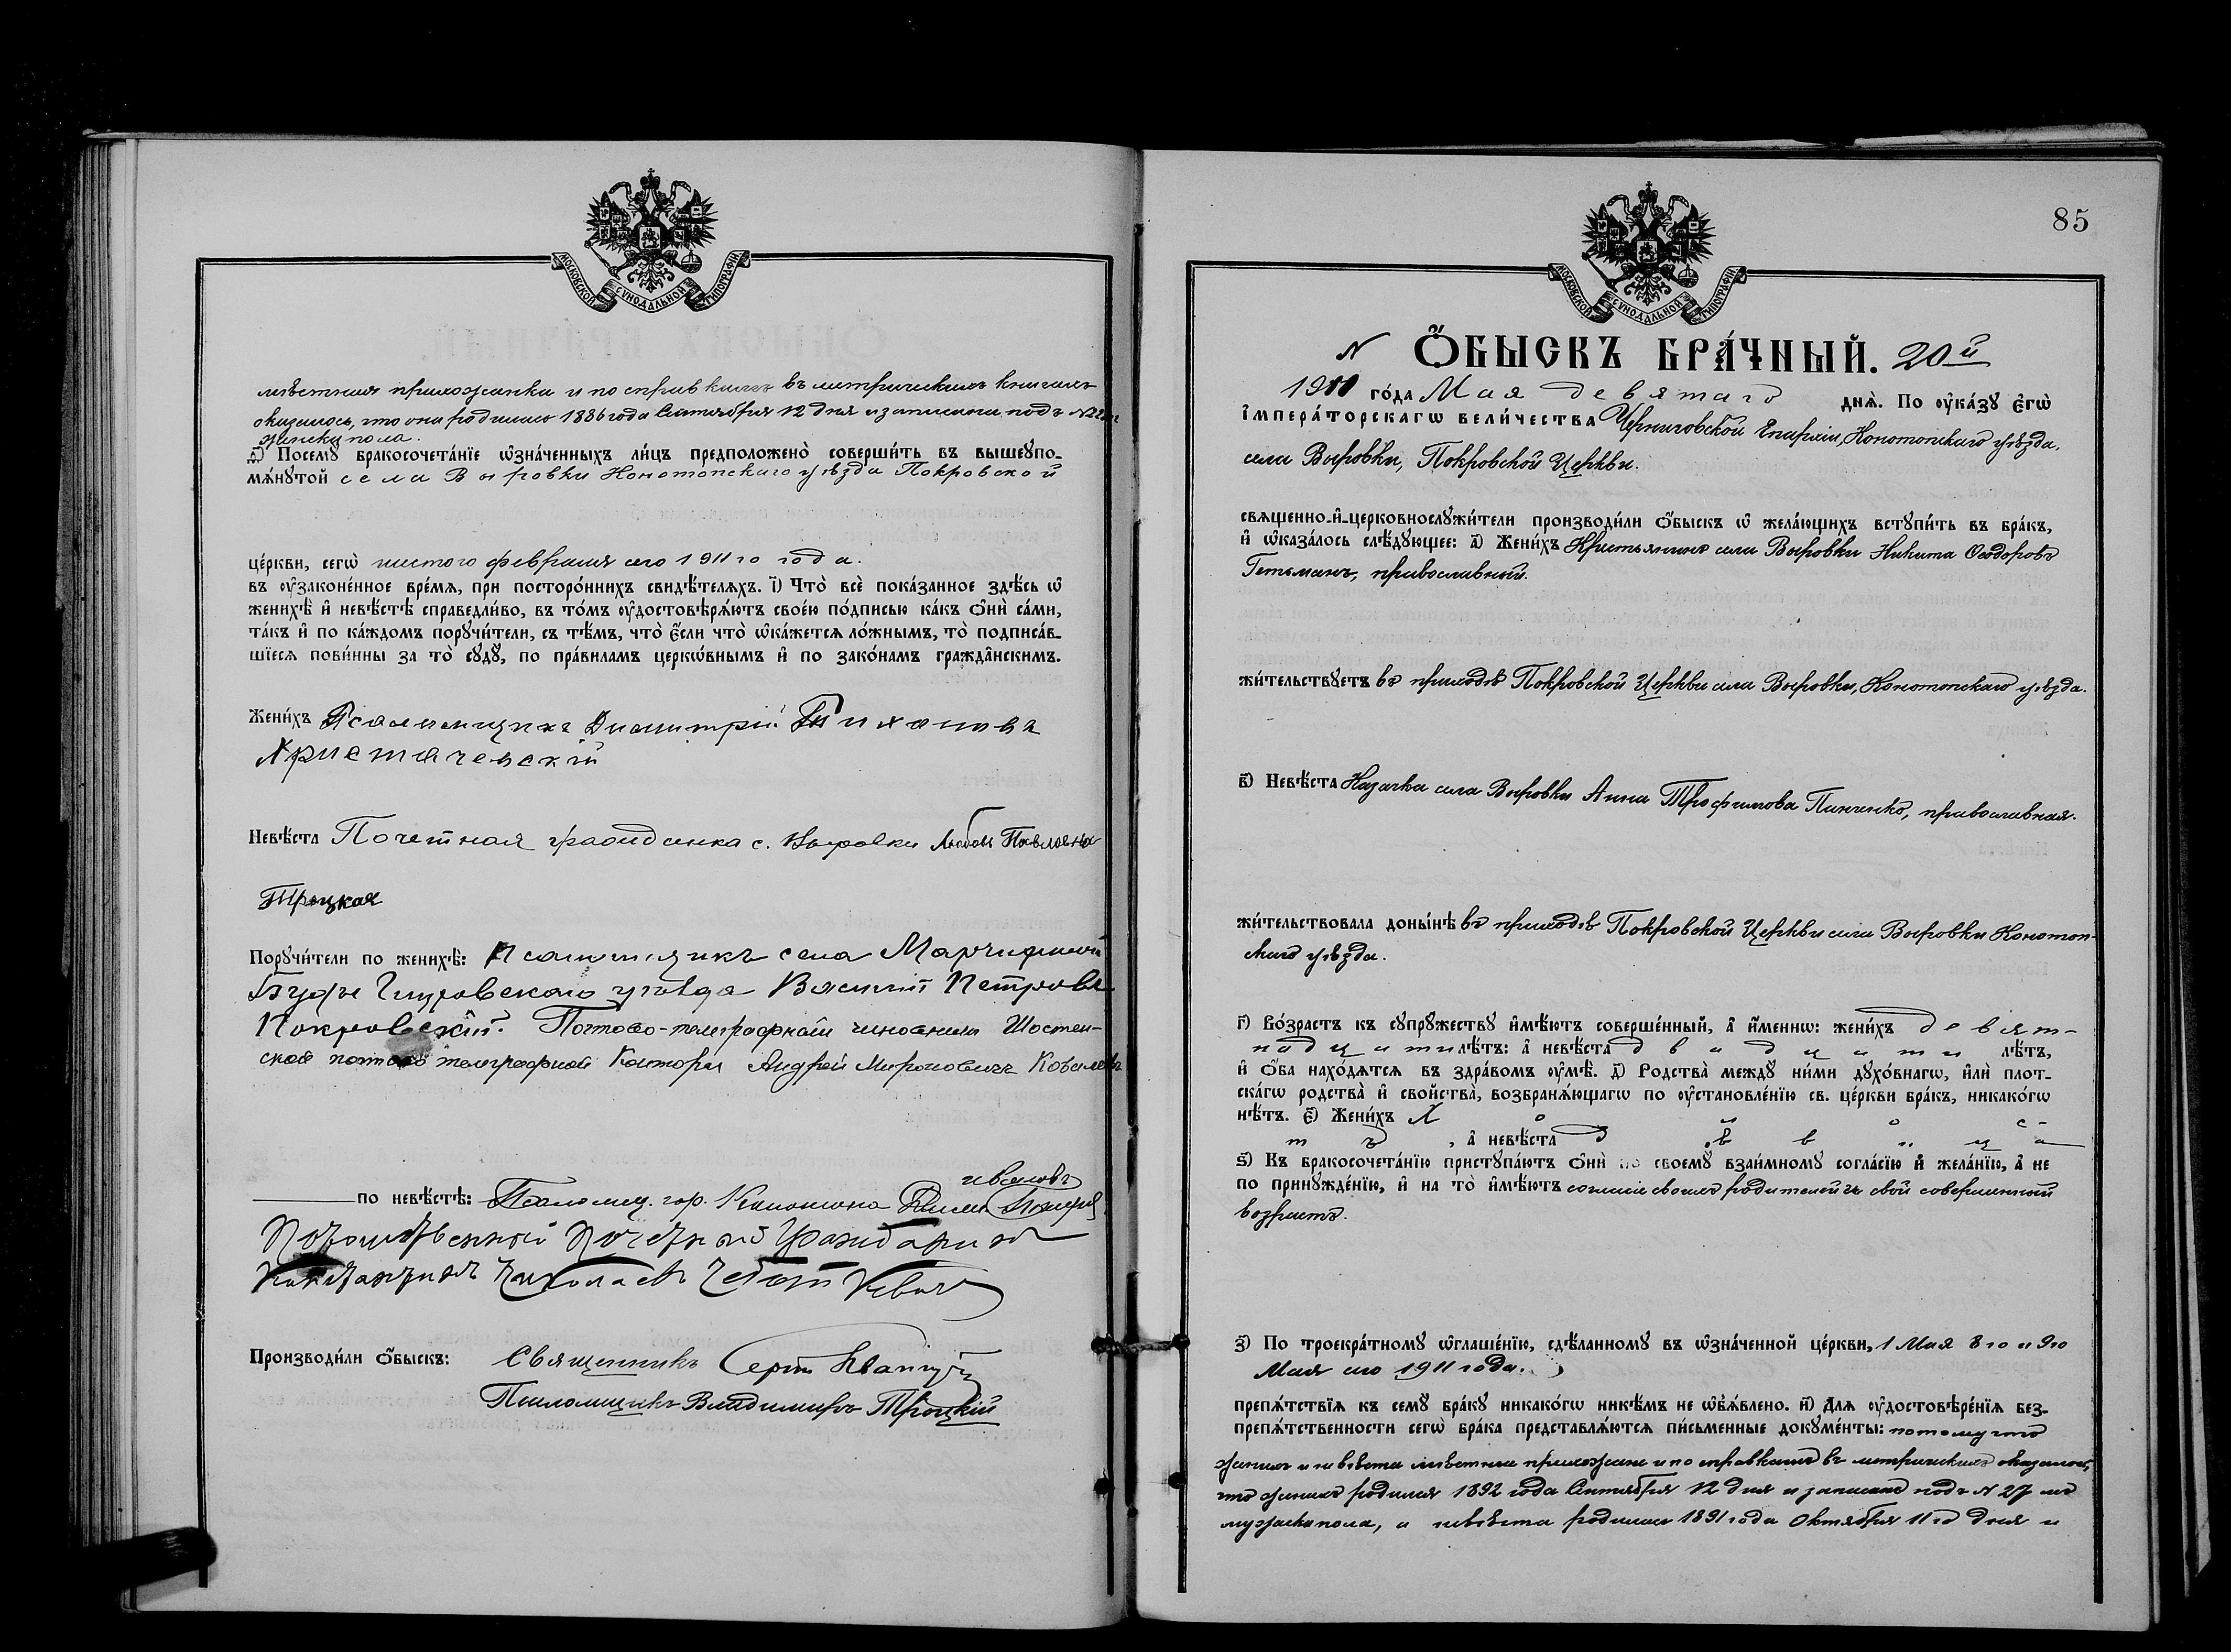 МОСКОВСКОЙ СѴНОДАЛЬНОЙ ТИПОГРАФІИ
мѣстная прихожанка и по справкамъ въ метрическихъ книгахъ
оказалось, что она родилась 1886 года Сентября 12 дня и записана подъ №
женск пола.
Посемꙋ̀ бракосочета́нїе ѡ҆зна́ченныхъ ли́цъ предположено̀ соверши́ть въ вышеꙋпо-
мѧ́нꙋтой села Выровки Конотопскаго уѣзда Покровской
це́ркви, сегѡ̀ шестого февраля сего 1911 го года.
въ ѹ҆законе́нное вре́мѧ, при посторо́ннихъ свидѣ́телѧхъ. і҃) Что̀ всѐ пока́занное здѣ́сь ѡ҆
женихѣ̀ и҆ невѣ́стѣ справедли́во, въ то́мъ ѹ҆достовѣрѧ́ютъ свое́ю по́дписью ка́къ ѻ҆нѝ са́ми,
та́къ и҆ по ка́ждомъ порꙋчи́тели, съ тѣ́мъ, что̀ є҆́сли что̀ ѡ҆ка́жетсѧ ло́жнымъ, то̀ подписа́в-
шїесѧ пови́нны за то̀ сꙋдꙋ̀, по пра́виламъ церкѡ́внымъ и҆ по зако́намъ гражда̂нскимъ.
Жени́хъ Псаломщикъ Димитрій Тихоновъ
Христичевскій
Невѣ́ста Почетная гражданка с. Выровки Любовь Павловна
Троцкая
Порꙋчи́тели по женихѣ̀: Псаломщикъ села
Глуховскаго уѣзда Василій Петровъ
Покровскій. Почтово-телеграфный чиновникъ Шостен-
ской почтово телеграфной Конторы Андрей Мироновичъ
по невѣ́стѣ: Псаломщ. гор. Конотопа
Потомственный Почетный Гражданинъ
Николаевъ
Производи́ли ѻ҆́быскъ: Священникъ
Псаломщикъ Владимиръ Троцкій
85
МОСКОВСКОЙ СѴНОДАЛЬНОЙ ТИПОГРАФІИ
N Ѻ҆́БЫСКЪ БРА́ЧНЫЙ. 20й
1911 го́да Мая девятаго днѧ̀. По ѹ҆ка́зꙋ є҆гѡ̀
і҆мпера́торскагѡ вели́чества Черниговской Епархіи, Конотопскаго уѣзда,
села Выровки, Покровской Церкви.
свѧщенно-и҆-церковнослꙋжи́тели производи́ли ѻ҆́быскъ ѡ҆ жела́ющихъ встꙋпи́ть въ бра́къ,
и҆ ѡ҆каза́лось слѣ́дꙋющее: а҃) Жени́хъ Крестьянинъ села Выровки Никита Ѳеодоровъ
Гетьманъ, православный.
жи́тельствꙋетъ въ приходѣ Покровской Церкви села Выровки, Конотопскаго уѣзда.
в҃) Невѣ́ста Казачка села Выровки Анна Трофимова Пинченко, православная.
жи́тельствовала доны́нѣ въ приходѣ Покровской Церкви села Выровки Конотоп-
скаго уѣзда.
г҃) Во́зрастъ къ сꙋпрꙋ́жествꙋ и҆мѣ́ютъ соверше́нный, а҆ и҆́меннѡ: жени́хъ девят-
надцати лѣ́тъ: а҆ невѣ́ста двадцати лѣ́тъ,
и҆ ѻ҆́ба нахо́дѧтсѧ въ здра́вомъ ѹ҆мѣ̀. д҃) Родства̀ междꙋ̀ ни́ми дꙋхо́внагѡ, и҆лѝ плот-
ска́гѡ родства̀ и҆ сво́йства̀, возбранѧ́ющагѡ по ѹ҆становле́нїю св. це́ркви бра́къ, никако́гѡ
нѣ́тъ. є҃) Жени́хъ холос-
тъ, а҆ невѣ́ста дѣвица
ѕ҃) Къ бракосочета́нїю пристꙋпа́ютъ ѻ҆нѝ по своемꙋ̀ взаи́мномꙋ согла́сїю и҆ жела́нїю, а҆ не
по принꙋжде́нїю, и҆ на то̀ и҆мѣ́ютъ согласіе своихъ родителей и свой совершенный
возрастъ.
з҃) По троекра́тномꙋ ѡ҆глаше́нїю, сдѣ́ланномꙋ въ ѡ҆зна́ченной це́ркви, 1 Мая 8 го и 9 го
Мая сего 1911 года.
препѧ́тствїѧ къ семꙋ̀ бра́кꙋ никако́гѡ никѣ́мъ не ѡ҆б̾ѧ́влено. и҃) Для ѹ҆достовѣре́нїѧ без-
препѧ́тственности сегѡ̀ бра́ка представлѧ́ютсѧ пи́сьменные докꙋме́нты: потому что
женихъ и невѣста мѣстные прихожане и по справкамъ въ метрическихъ оказалось,
что женихъ родился 1892 года Сентября 12 дня и записанъ подъ N 27 мъ
мужска пола, а невѣста родилась 1891 года Октября 11 го дня и